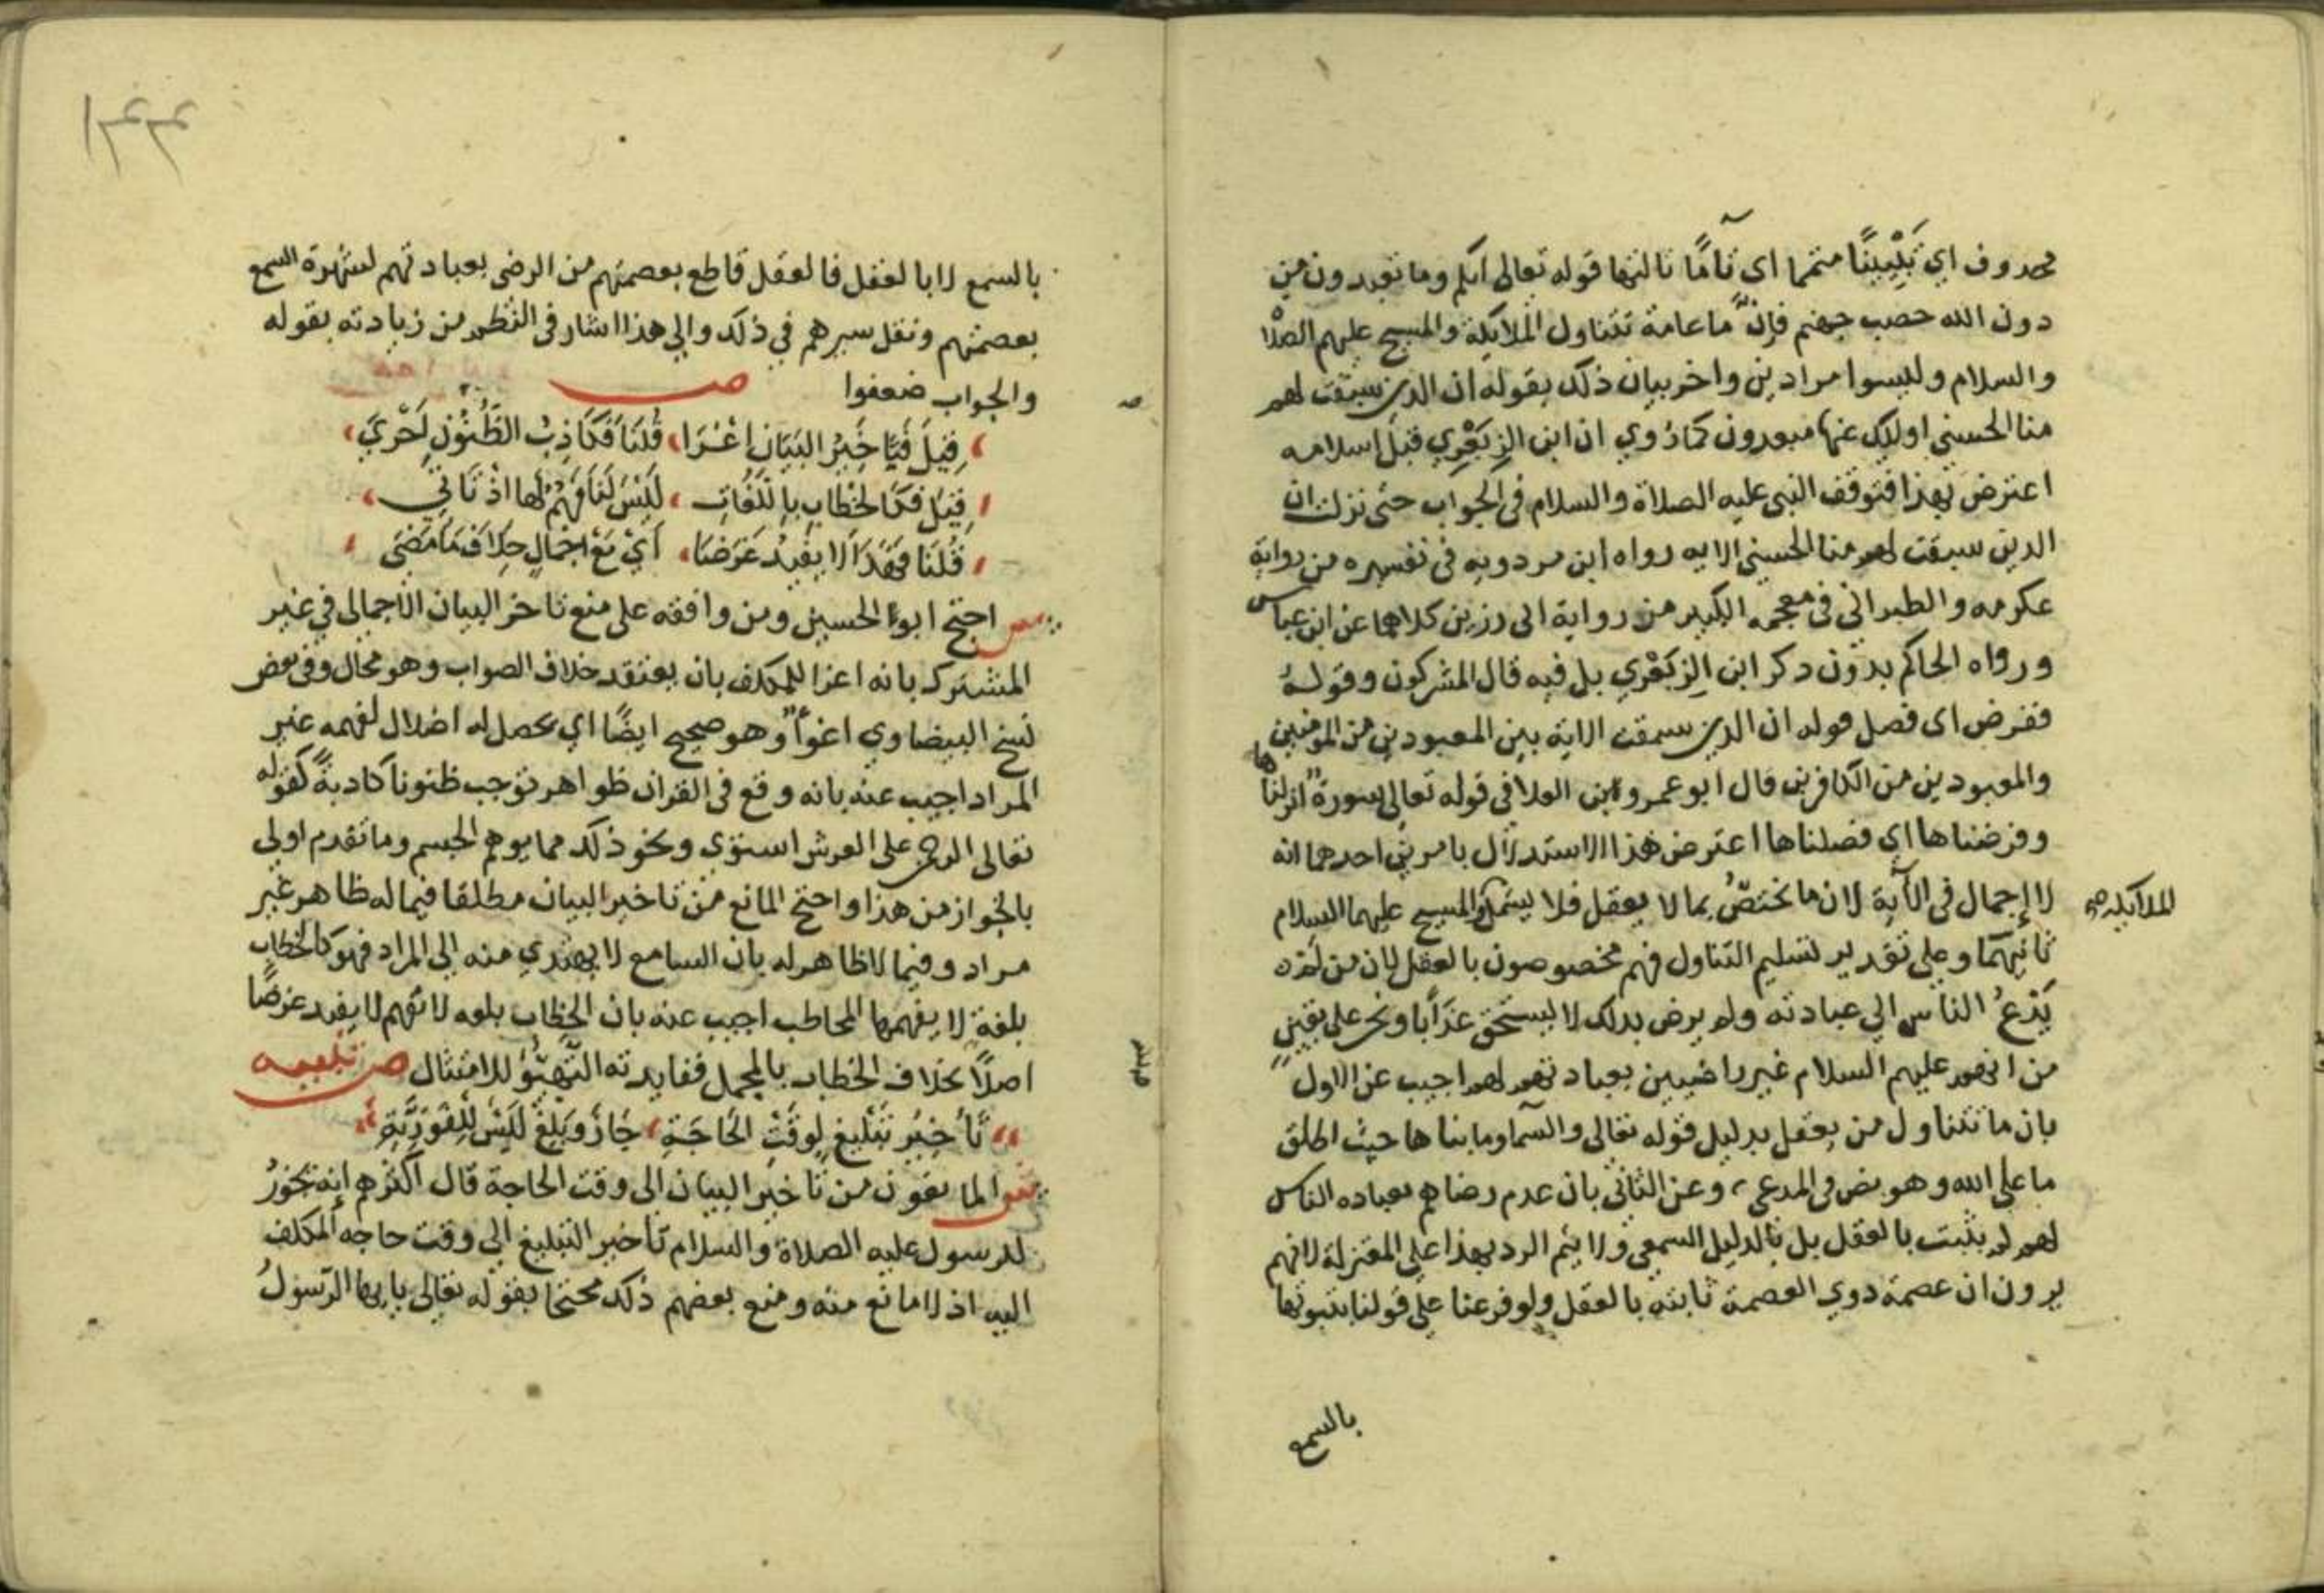 محذوف اي تبيينًا متمما اي تآمًا ثالثها قوله تعالى انكم وما تعبدون من
دون الله حصب جهنم فإن ما عامة تتناول الملايكة والمسيح عليهم الصلاة
والسلام وليسوا مرادين واخر بيان ذلك بقوله ان الذين سبقت لهم
منا الحسنى اوليك عنها مبعدون كما رُوي ان ابن الزبَعْرِي قبل إسلامه
اعترض بهذا فتوقف النبي عليه الصلاة والسلام في الجواب حتى نزلت ان
الذين سبقت لهم منا الحسنى الايه رواه ابن مردويه في تفسيره من رواية
عكرمه والطبراني في معجمه الكبير من رواية ابي رزين كلاهما عن ابن عباس
ورواه الحاكم بدون ذكر ابن الزِبَعْرِي بل فيه قال المشركون وقولهُ
ففرض اى فصل قوله ان الذين سبقت الاية بين المعبودين من المومنين
والمعبودين من الكافرين قال ابو عمرو ابن العلا في قوله تعالى سورة انزلناها
وفرضناها اي فصلناها اعترض هذا الاستدلال بامرين احدهما انه
لا إجمال في الآية لان ما تختصُّ بما لا يعقل فلا يشمل والمسيح عليهما السلام
الملايكه صح
ثانيهما وعلى تقدير تسليم التناول فهم مخصوصون بالعقل لان من لم
يَدْعُ الناس الى عبادته ولم يرض بذلك لا يستحق عذابا ونحن على يقين
من انهم عليهم السلام غير راضيين بعبادتهم لهم اجيب عن الاول
بان ما تتناول من يعقل بدليل قوله تعالى والسمآ وما بناها حيث اطلق
ما على الله وهو نص في المدعى، وعن الثاني بان عدم رضاهم بعباده الناس
لهم لم يثبت بالعقل بل بالدليل السمعي ولا يتم الرد بهذا على المعتزلة لانهم
يرون ان عصمة ذوي العصمة ثابته بالعقل ولو فرعنا على قولنا بثبوتها
بالسمع
١٣٣
بالسمع لا بالعقل فالعقل قاطع بعصمتهم من الرضى بعبادتهم لشهرة السمع
بعصمتهم ونقل سيرهم في ذلك والى هذا اشار في النظم من زيادته بقوله
والجواب ضعفوا ص
قِيلَ فَيَا خِيرُ البَيَانِ إغْرَا، قُلنَا فَكَاذِبُ الظُّنُوْنِ لَحْرِيَ،
قِيْلَ فَكَالخِطَابِ بِاللُغَاتِ، لَيْسَ لَنَا فَهْمٌ لها اذْ تَاتِي،
قُلْنَا فَهَذَا لا يفِيْدُ غَرَضَا، أيْ مَعَ اجْمَالٍ خِلاَفَ مَا مَضَى
ش احتج ابو الحسين ومن وافقه على منع تاخر البيان الاجمالي في غير
المشترك بانه اغرا للمكلف بان يعتقد خلاف الصواب وهو محال وفي بعض
نسخ البيضاوي اغوآ وهو صحيح ايضًا اي يحصل له اضلال لفهمه غير
المراد اجيب عنه بانه وقع في القران ظواهر توجب ظنونا كاذبةً كقوله
تعالى الرحمن على العرش استوى ونحو ذلك مما يوهم الجسم وما تقدم اولى
بالجواز من هذا واحتج المانع من تاخير البيان مطلقا فيما له ظاهر غير
مراد وفيما لا ظاهر له بان السامع لا يهتدي منه الى المراد فهو كالخطاب
بلغة لا يفهمها المخاطب اجيب عنه بان الخطاب بلغه لا تفهم لا يفيد غرضًا
اصلًا بخلاف الخطاب بالمجمل ففايدته التَّهَيُّؤُ للامتثال ص تنبيه
تَأخِيْرُ تَبْلِيغٍ لِوَقْتِ الحَاجَةِ، جَازَ وَبَلِّغْ لَيْسَ لِلْفَوْرِيَّةِ،
ش المانعون من تاخير البيان الى وقت الحاجة قال اكثرهم إنه يجوزُ
للرسول عليه الصلاة والسلام تأخير التبليغ الى وقت حاجه المكلف
اليه اذ لا مانع منه ومنع بعضهم ذلك محتجا بقوله تعالى يا ايها الرسولُ